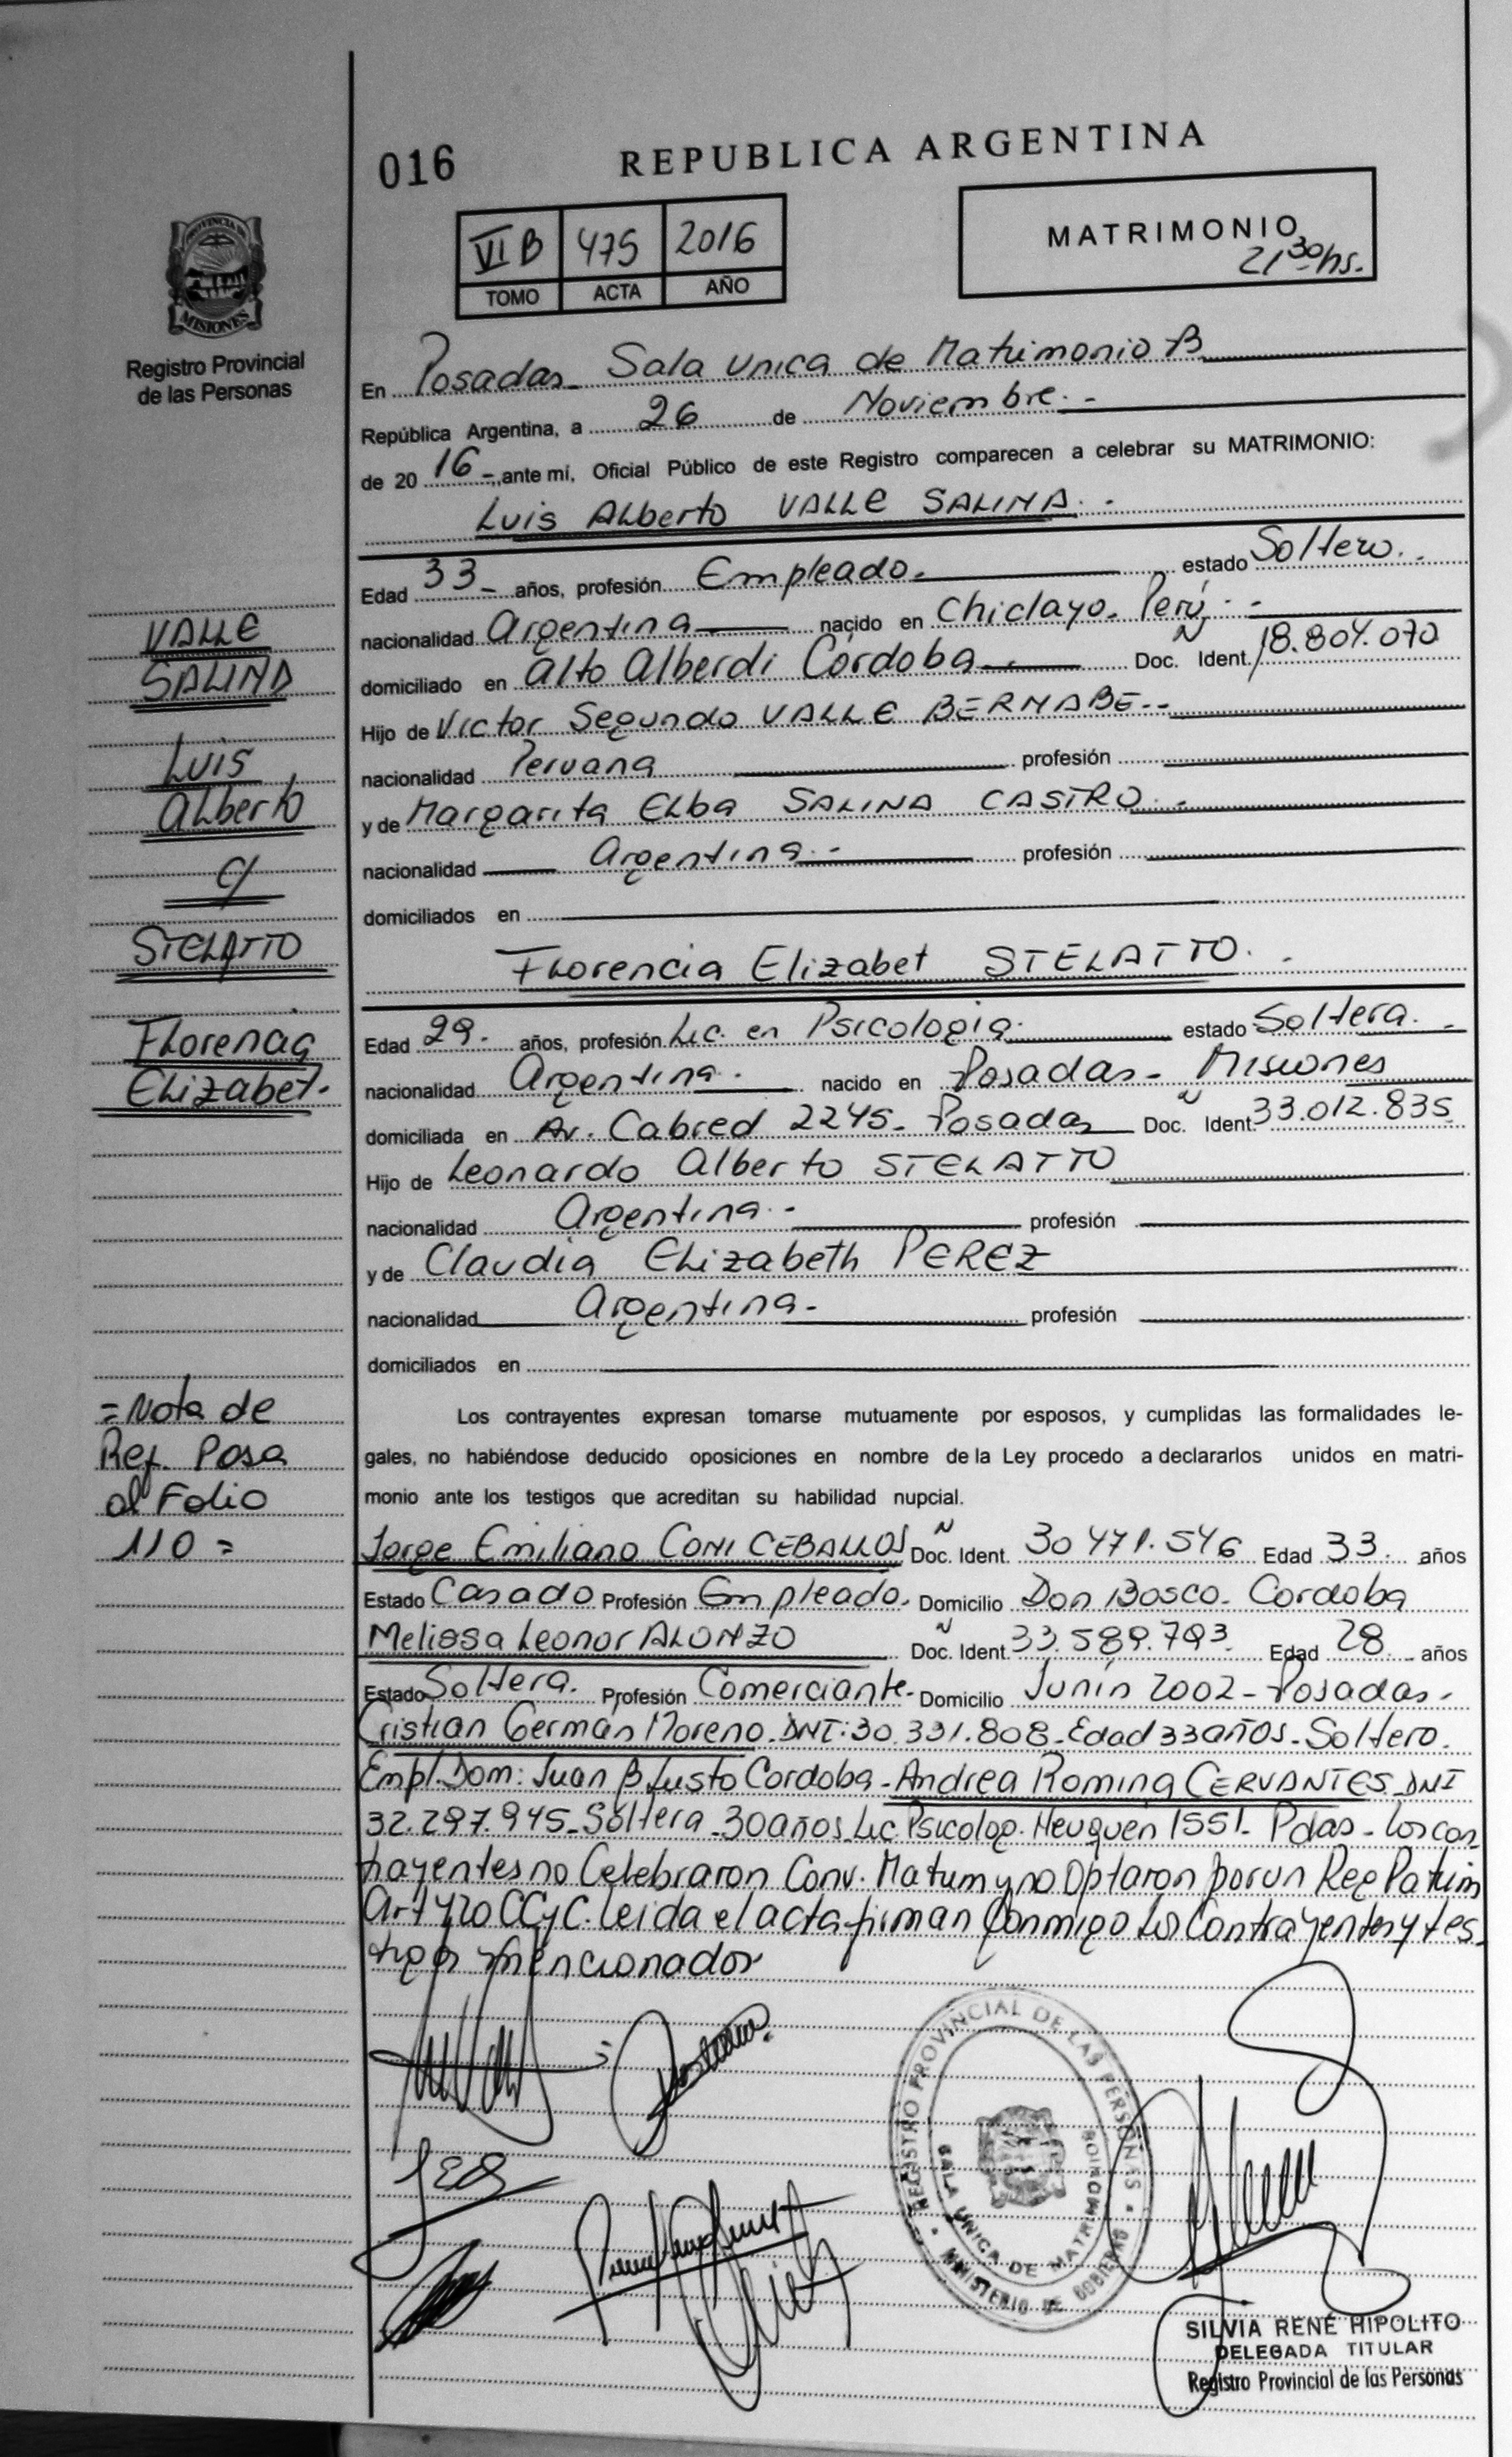 016
REPUBLICA ARGENTINA
VI B 475 2016
TOMO ACTA AÑO
MATRIMONIO
21 30 hs.
PROVINCIA DE
MISIONES
Registro Provincial
de las Personas
En Posadas - Sala Unica de Matrimonio B
República Argentina, a 26 de Noviembre.-
de 20 16 -, ante mí, Oficial Público de este Registro comparecen a celebrar su MATRIMONIO:
Luis Alberto VALLE SALINA.-
Edad 33 - años, profesión Empleado. estado Soltero.
nacionalidad Argentina nacido en Chiclayo - Perú.-
domiciliado en Alto Alberdi Córdoba Doc. Ident. N 18.804.070
Hijo de Victor Segundo VALLE BERNABE.-
nacionalidad Peruana profesión
y de Margarita Elba SALINA CASTRO.-
nacionalidad Argentina.- profesión
domiciliados en
Florencia Elizabet STELATTO.-
Edad 29. años, profesión Lic. en Psicología. estado Soltera.-
nacionalidad Argentina. nacido en Posadas - Misiones
domiciliada en Av. Cabred 2245 - Posadas Doc. Ident. N 33.012.835
Hijo de Leonardo Alberto STELATTO
nacionalidad Argentina.- profesión
y de Claudia Elizabeth PEREZ
nacionalidad Argentina.- profesión
domiciliados en
Los contrayentes expresan tomarse mutuamente por esposos, y cumplidas las formalidades le-
gales, no habiéndose deducido oposiciones en nombre de la Ley procedo a declararlos unidos en matri-
monio ante los testigos que acreditan su habilidad nupcial.
Jorge Emiliano CONI CEBALLOS Doc. Ident. N 30 471.546 Edad 33. años
Estado Casado Profesión Empleado. Domicilio Don Bosco - Cordoba
Melissa Leonor ALONZO Doc. Ident. N 33.589.793. Edad 28 años
Estado Soltera. Profesión Comerciante. Domicilio Junín 2002 - Posadas -
Cristian Germán Moreno - DNI: 30.331.808 - Edad 33 años - Soltero.
Empl. Dom: Juan B Justo Cordoba - Andrea Romina CERVANTES - DNI
32.297.945 - Soltera - 30 años - Lic Psicolog. Neuquen 1551 - Pdas - Los con
trayentes no Celebraron Conv. Matrim y no Optaron por un Reg Patrim
Art 420 CCyC. Leida el acta firman Conmigo los Contrayentes y tes-
tigos mencionados
VALLE
SALINA
Luis
Alberto
c/
STELATTO
Florencia
Elizabet.
= Nota de
Ref. Pasa
al Folio
110 =
REGISTRO PROVINCIAL DE LAS PERSONAS
SALA UNICA DE MATRIMONIOS
MINISTERIO DE GOBIERNO
SILVIA RENÉ HIPOLITO
DELEGADA TITULAR
Registro Provincial de las Personas